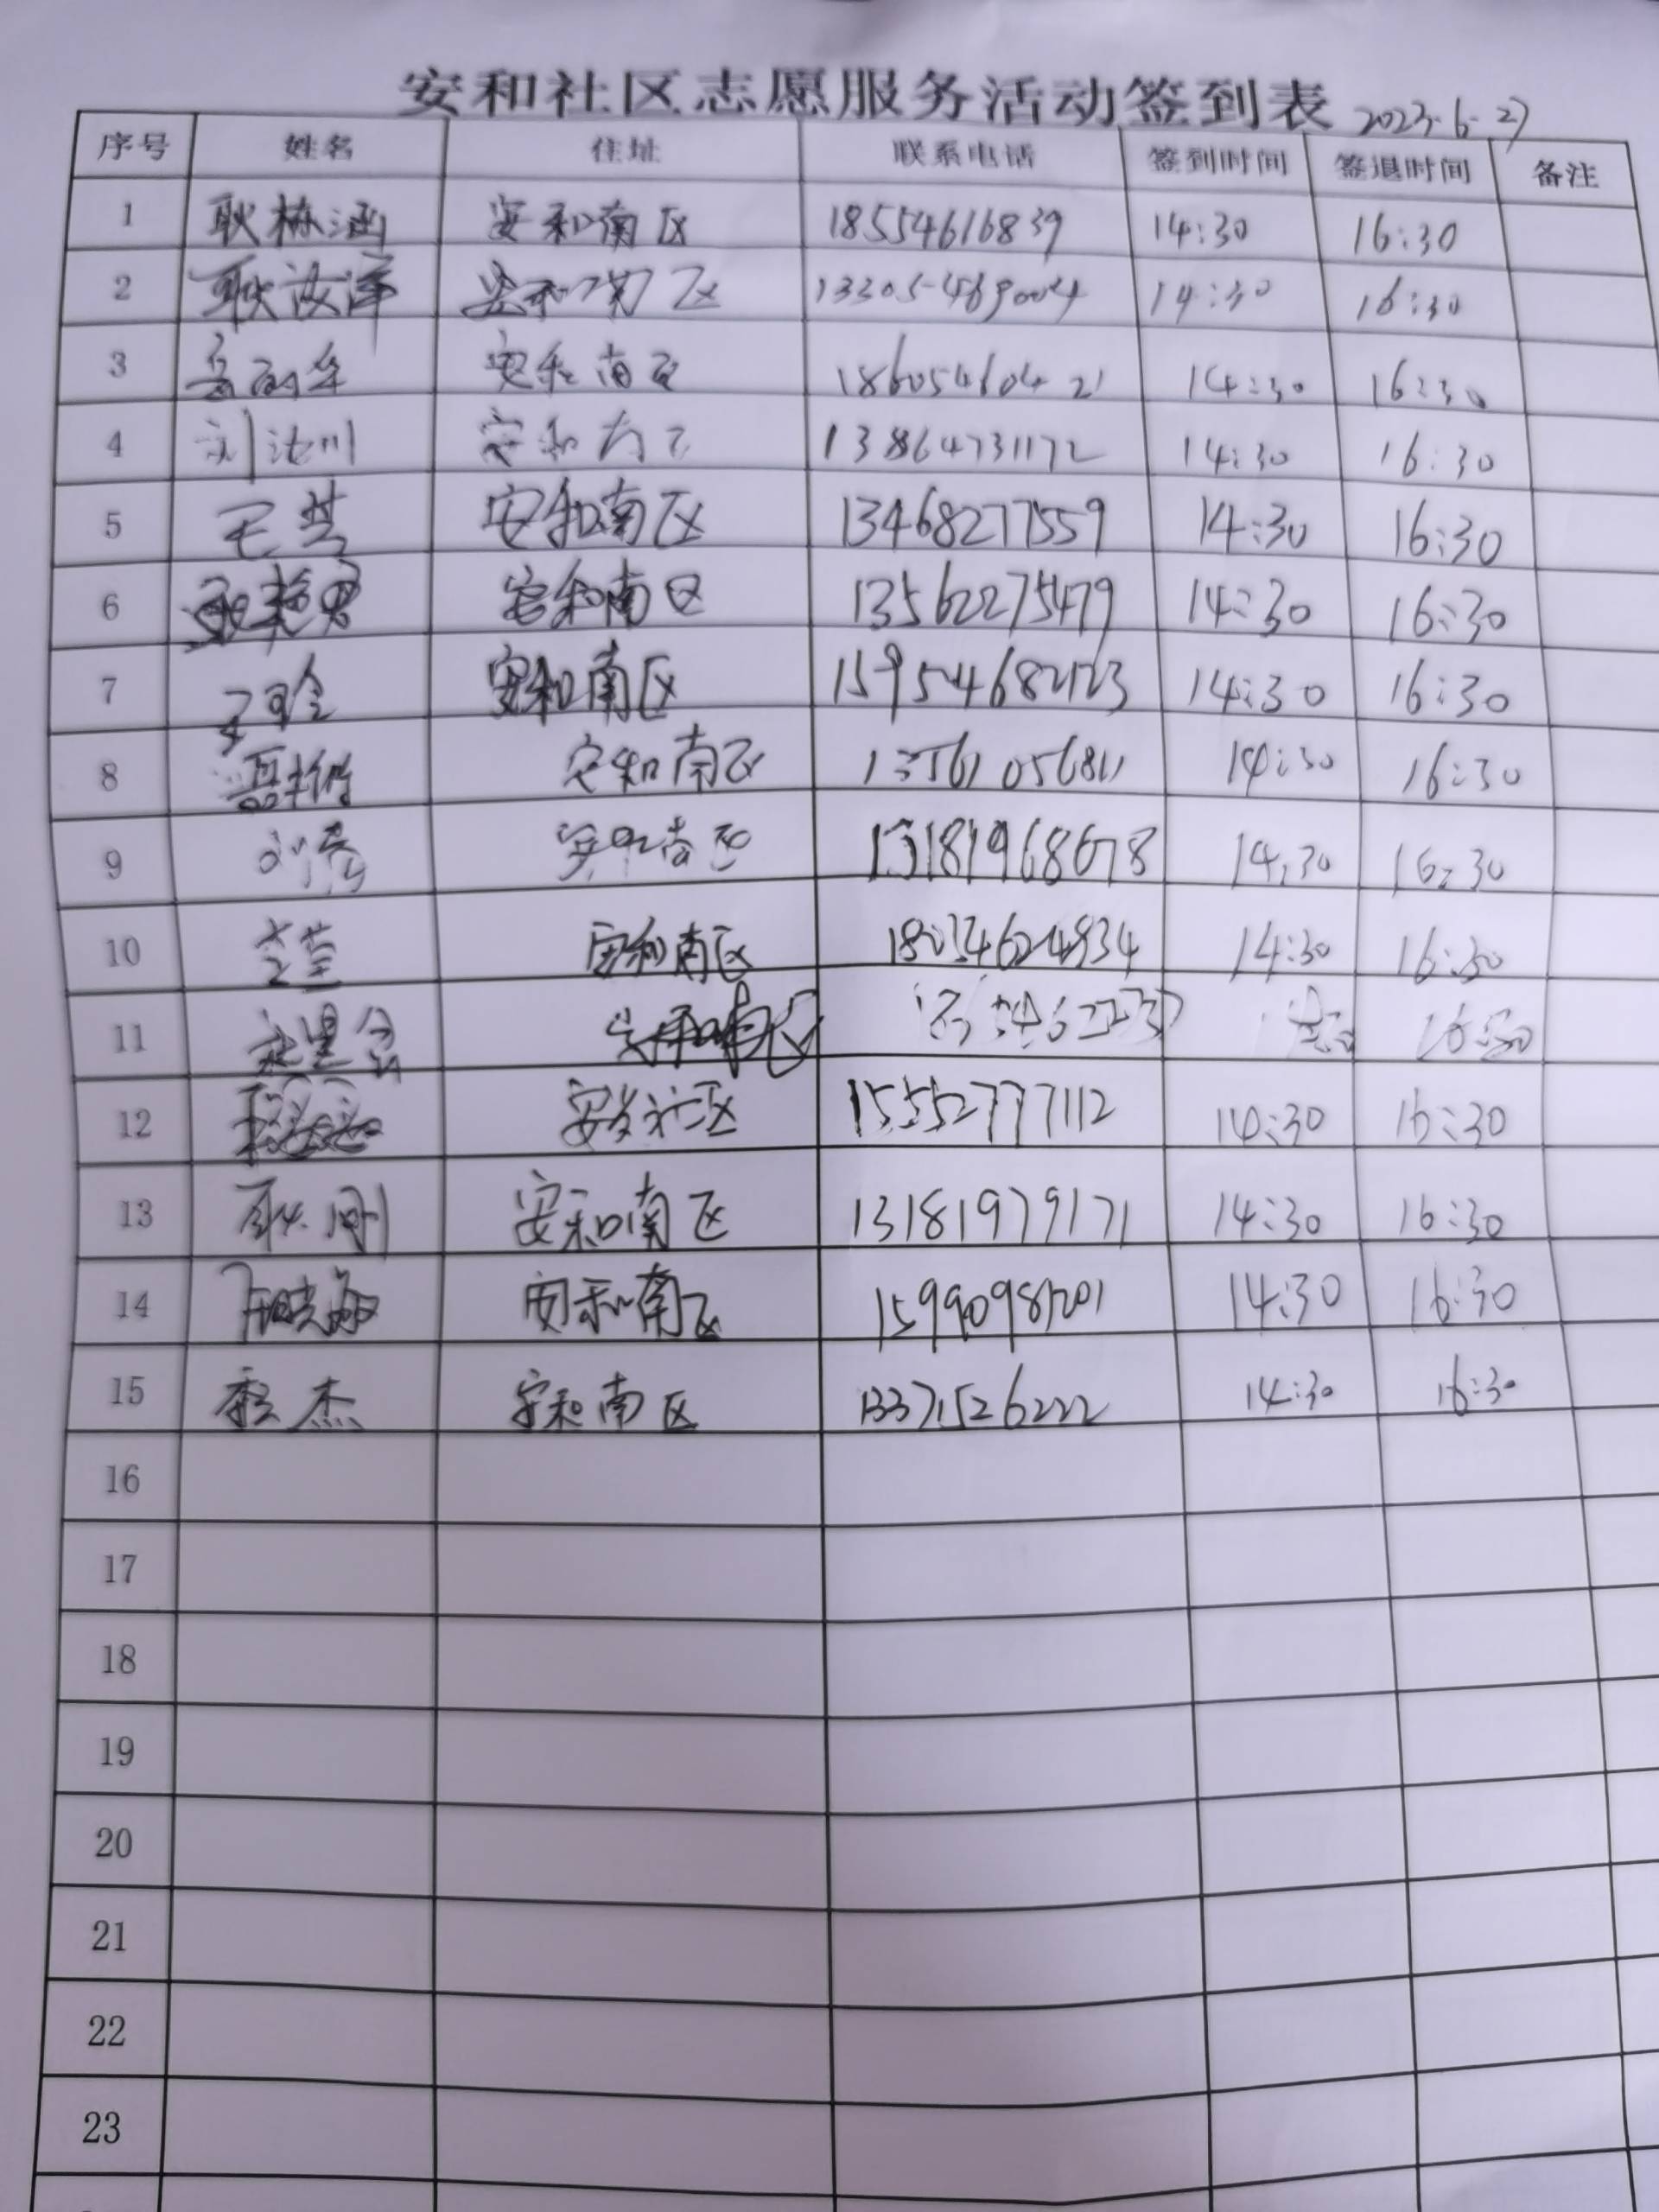 安和社区志愿服务活动签到表 2023.6.27
序号 姓名 住址 联系电话 签到时间 签退时间 备注
1 耿栋涵 安和南区 18554616839 14:30 16:30
2 耿汝泽 安和南区 13305469004 14:30 16:30
3 安和南区 18605460421 14:30 16:30
4 刘汝川 安和南区 13864731172 14:30 16:30
5 王芸 安和南区 13468277559 14:30 16:30
6 安和南区 13562275479 14:30 16:30
7 安和南区 15954682123 14:30 16:30
8 安和南区 13561056811 14:30 16:30
9 安和南区 13181968678 14:30 16:30
10 安和南区 14:30 16:30
11 安和南区 16:30
12 社区 15552777112 14:30 16:30
13 耿刚 安和南区 13181979171 14:30 16:30
14 安和南区 14:30 16:30
15 杰 安和南区 13371526222 14:30 16:30
16
17
18
19
20
21
22
23